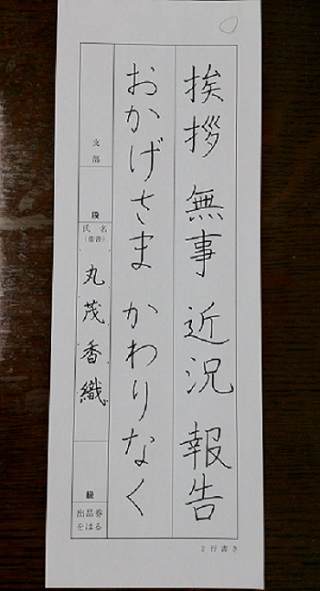 挨拶 無事 近況 報告
おかげさま かわりなく
支部
段
氏名
(番書)
丸茂香織
級
出品券
をはる
2行書き